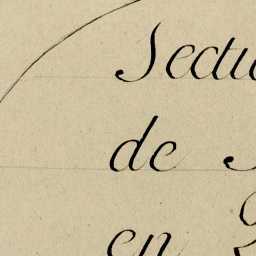 Secti
de
en